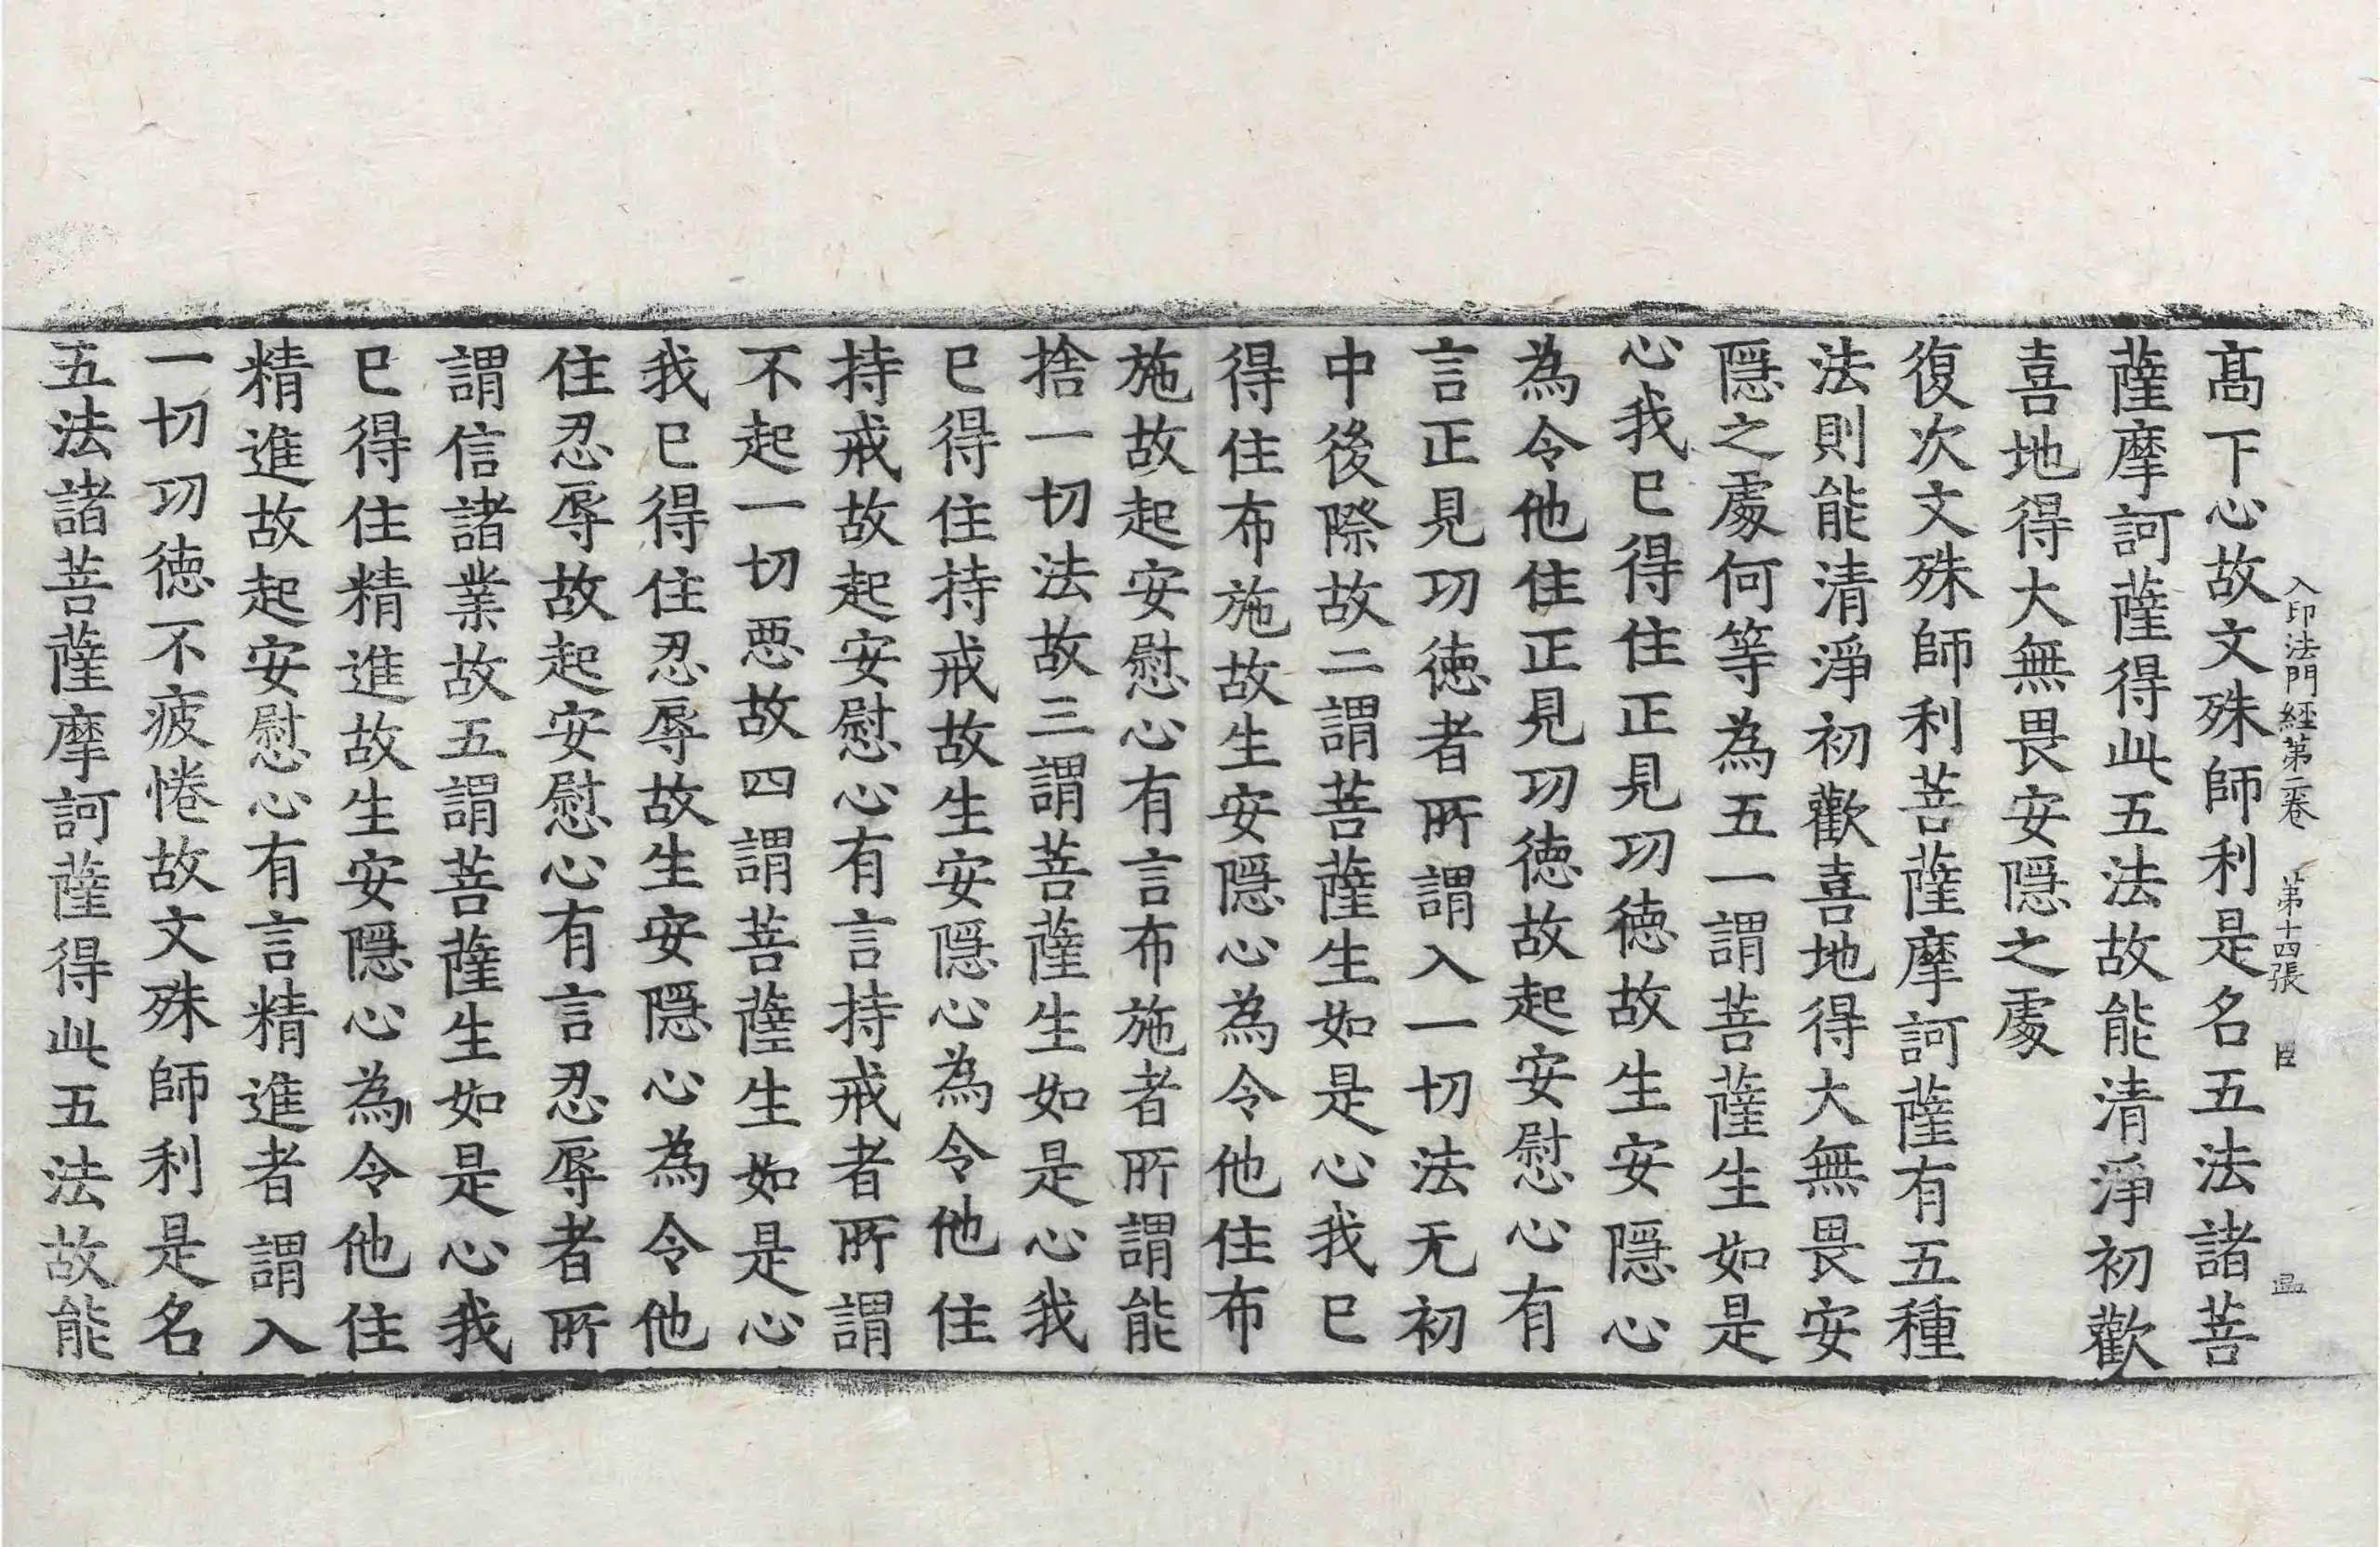 髙下心故文殊師利是名五法諸菩
入印法門經第二卷　第十四張
薩摩訶薩得此五法故能清淨初歡
喜地得大無畏安隱之處
復次文殊師利菩薩摩訶薩有五種
法則能清淨初歡喜地得大無畏安
隱之處何等為五一謂菩薩生如是
心我已得住正見功德故生安隱心
為令他住正見功德故起安慰心有
言正見功德者所謂入一切法无初
中後際故二謂菩薩生如是心我已
得住布施故生安隱心為令他住布
施故起安慰心有言布施者所謂能
捨一切法故三謂菩薩生如是心我
已得住持戒故生安隱心為令他住
持戒故起安慰心有言持戒者所謂
不起一切惡故四謂菩薩生如是心
我已得住忍辱故生安隱心為令他
住忍辱故起安慰心有言忍辱者所
謂信諸業故五謂菩薩生如是心我
已得住精進故生安隱心為令他住
精進故起安慰心有言精進者謂入
一切功德不疲惓故文殊師利是名
五法諸菩薩摩訶薩得此五法故能